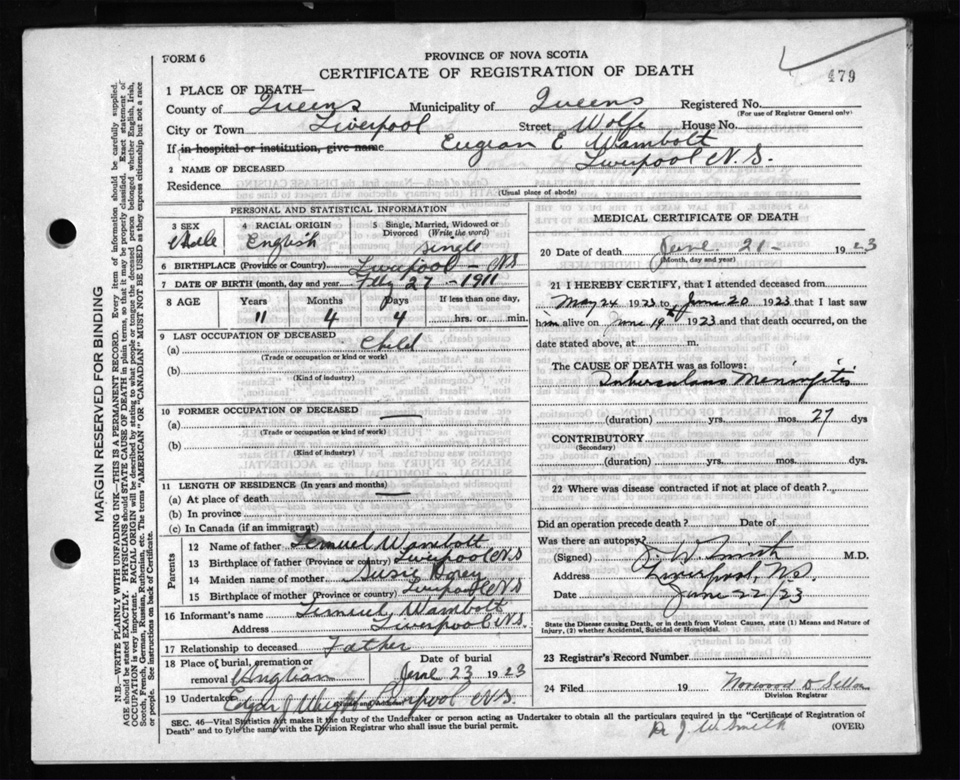 FORM 6
PROVINCE OF NOVA SCOTIA
CERTIFICATE OF REGISTRATION OF DEATH
479
1 PLACE OF DEATH—
County of Queens Municipality of Queens Registered No.
(For use of Registrar General only)
City or Town Liverpool Street Wolfe House No.
If in hospital or institution, give name
2 NAME OF DECEASED Eugian E Wambolt
Residence Liverpool N.S.
(Usual place of abode)
PERSONAL AND STATISTICAL INFORMATION
3 SEX Male
4 RACIAL ORIGIN English
5 Single, Married, Widowed or Divorced (Write the word) Single
6 BIRTHPLACE (Province or Country) Liverpool - N.S
7 DATE OF BIRTH (month, day and year) Feby 27 - 1911
8 AGE Years Months Days If less than one day,
11 4 4 hrs. or min.
9 LAST OCCUPATION OF DECEASED
(a) Child
(Trade or occupation or kind of work)
(b)
(Kind of industry)
10 FORMER OCCUPATION OF DECEASED
(a) —
(Trade or occupation or kind of work)
(b)
(Kind of industry)
11 LENGTH OF RESIDENCE (In years and months)
(a) At place of death —
(b) In province
(c) In Canada (if an immigrant)
Parents
12 Name of father Lemuel Wambolt
13 Birthplace of father (Province or country) Liverpool N.S
14 Maiden name of mother Susie
15 Birthplace of mother (Province or country) Liverpool N.S
16 Informant's name Lemuel Wambolt
Address Liverpool N.S.
17 Relationship to deceased Father
18 Place of burial, cremation or removal
Date of burial
June 23 1923
19 Undertaker Edgar J Liverpool N.S.
MEDICAL CERTIFICATE OF DEATH
20 Date of death June 21- 1923
(Month, day and year)
21 I HEREBY CERTIFY, that I attended deceased from
May 24 1923 to June 20 1923 that I last saw
him alive on June 19 1923 and that death occurred, on
date stated above, at m.
The CAUSE OF DEATH was as follows:
Tuberculous Meningitis
(duration) yrs. mos. 27 dys
CONTRIBUTORY
(Secondary)
(duration) yrs. mos. dys.
22 Where was disease contracted if not at place of death?
Did an operation precede death? Date of
Was there an autopsy?
(Signed) J W Smith M.D.
Address Liverpool, N.S.
Date June 22/23
State the Disease causing Death, or in death from Violent Causes, state (1) Means and Nature of Injury, (2) whether Accidental, Suicidal or Homicidal.
23 Registrar's Record Number
24 Filed 19
Division Registrar
SEC. 46—Vital Statistics Act makes it the duty of the Undertaker or person acting as Undertaker to obtain all the particulars required in the "Certificate of Registration of
Death" and to fyle the same with the Division Registrar who shall issue the burial permit.
(OVER)
Dr J. W. Smith
MARGIN RESERVED FOR BINDING
N.B.—WRITE PLAINLY WITH UNFADING INK—THIS IS A PERMANENT RECORD. Every item of information should be carefully supplied.
AGE should be stated EXACTLY. PHYSICIANS should STATE CAUSE OF DEATH in plain terms, so that it may be properly classified. Exact statement of
OCCUPATION is very important. RACIAL ORIGIN will be described by stating to what people or tongue the deceased person belonged whether English, Irish,
Scotch, French, German, Russian, Ruthenian, etc. The terms "AMERICAN" OR "CANADIAN" MUST NOT BE USED as they express citizenship but not a race
or people. See instructions on back of Certificate.